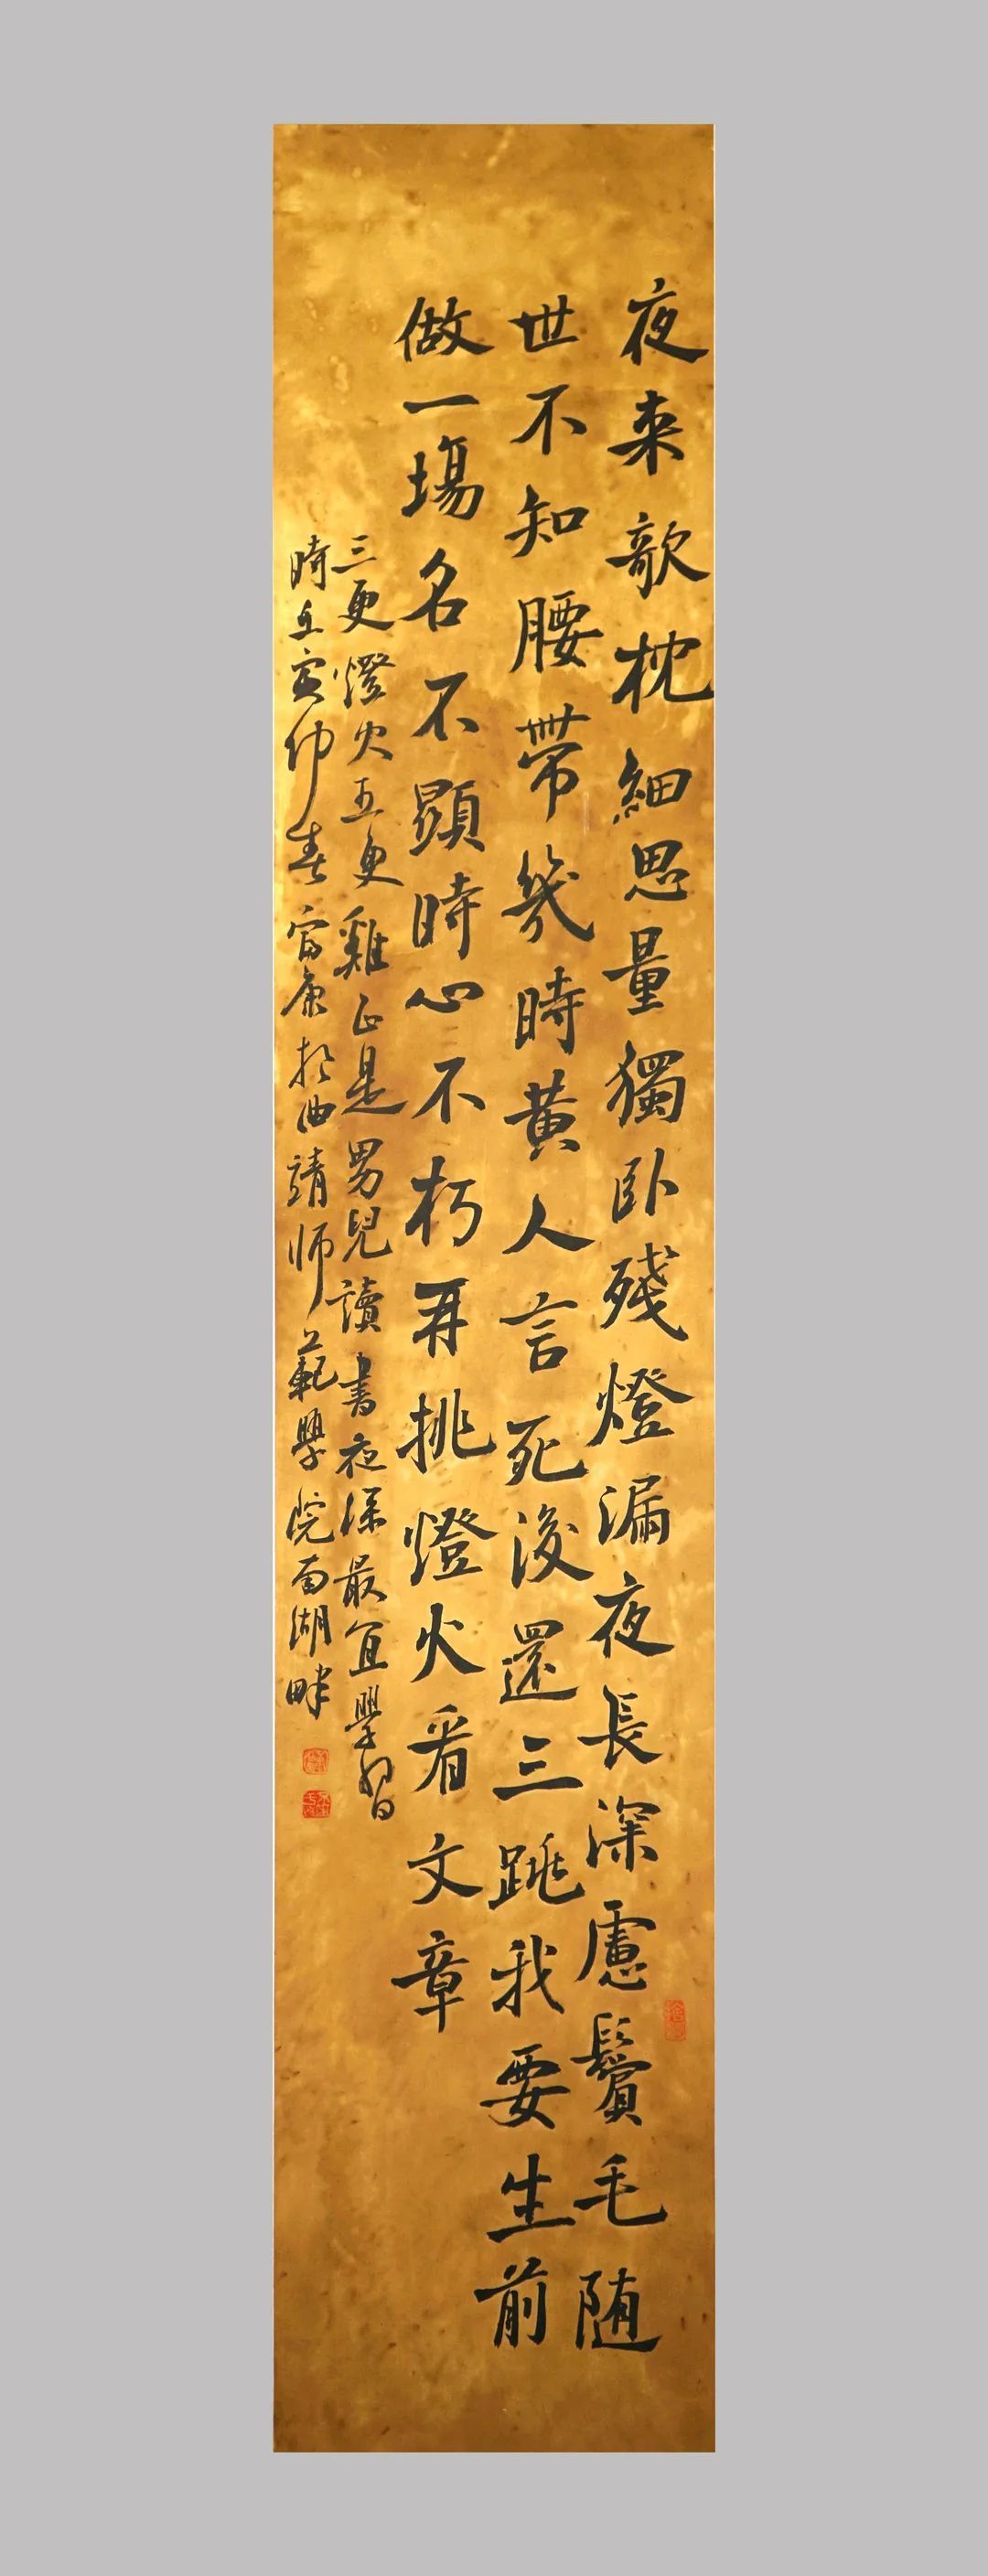 夜来歌枕細思量獨卧殘燈漏夜長深慮鬢毛随
世不知腰帶幾時黃人言死後還三跳我要生前
做一場名不顯時心不朽再挑燈火看文章
三更燈火五更雞正是男兒讀書夜深最宜學習
時壬寅仲春富康於曲靖师範學院南湖畔